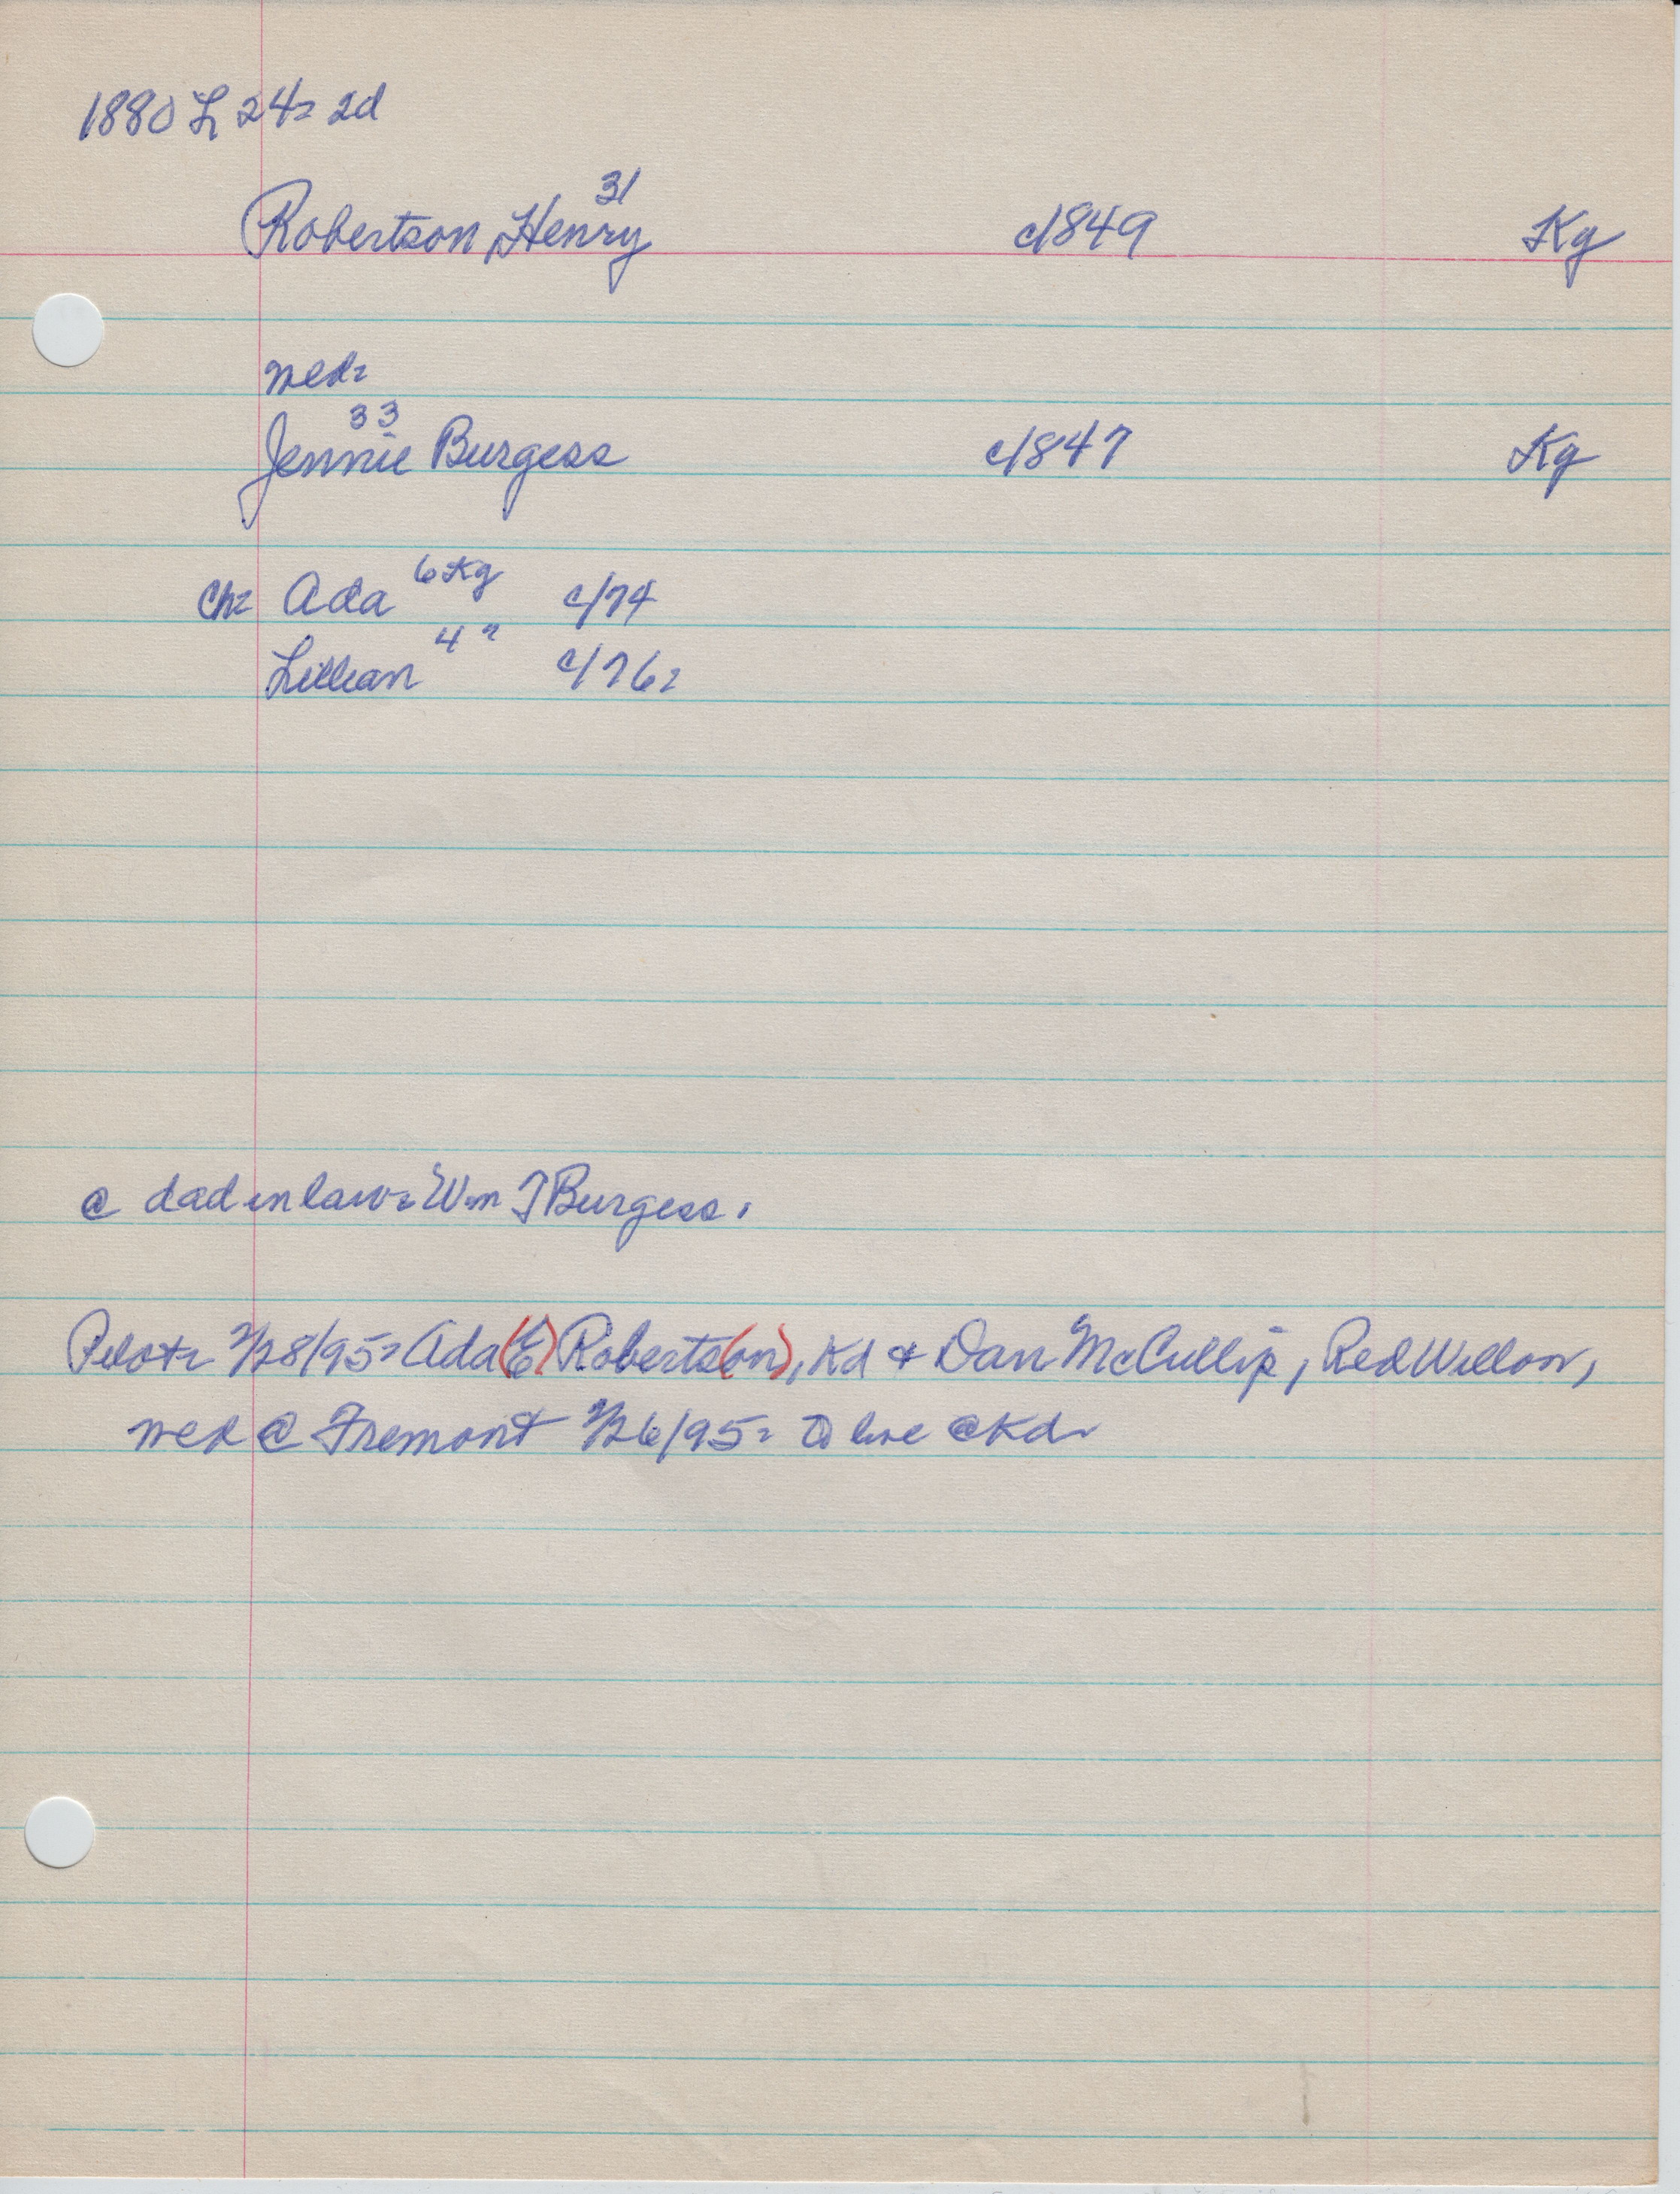 1880 L 24= 2d
31
Robertson, Henry c/1849 Kg
wed=
33
Jennie Burgess c/1847 Kg
6 Kg
Ch= Ada c/74
4 "
Lillian c/76=
@ dad in law= Wm J Burgess.
Pilot= 2/28/95= Ada (E) Roberts(on), Kd & Dan McCullip, Red Willow,
wed @ Fremont 2/26/95= To live @ Kd.